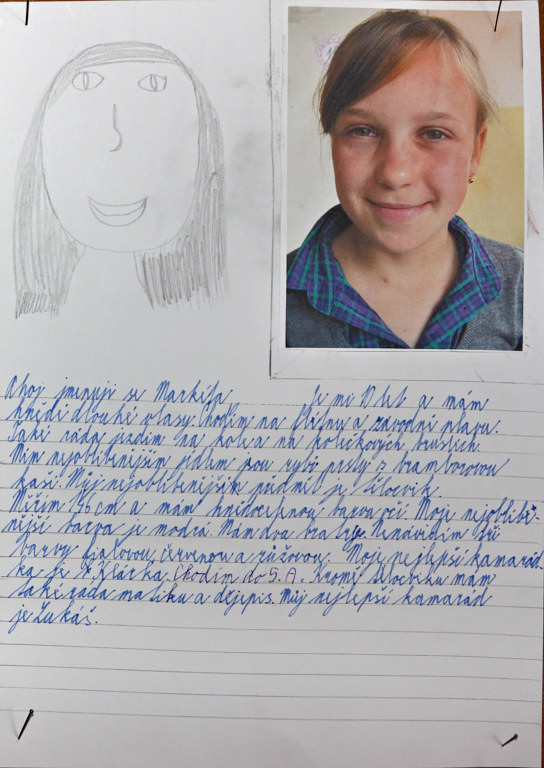 Ahoj jmenuji se Markéta. Je mi 11 let a mám
hnědé dlouhé vlasy. Chodím na flétnu a závodně plavu.
Také ráda jezdím na kole a na kolečkových bruslích.
Mým nejoblíbenějším jídlem jsou rybí prsty s bramborovou
kaší. Můj nejoblíbenějším předmět je tělocvik.
Měřím 146 cm a mám hnědozelenou barvu očí. Moje nejoblíbe-
nější barva je modrá. Mám dva bratry. Nenávidím tři
barvy fialovou, červenou a růžovou. Moje nejlepší kamarád-
ka je Klárka. Chodím do 5. A. Kromě tělocviku mám
také ráda matiku a dějepis. Můj nejlepší kamarád
je Lukáš.